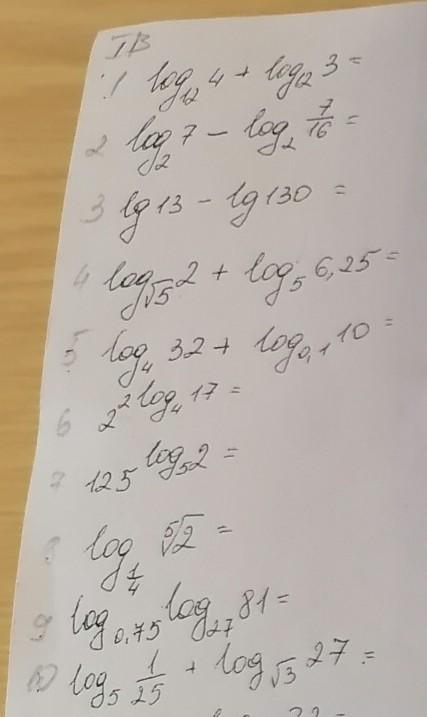 IB
1 log₁₂ 4 + log₁₂ 3 =
2 log₂ 7 − log₂ 7/16 =
3 lg 13 − lg 130 =
4 log_√5 2 + log₅ 6,25 =
5 log₄ 32 + log₀,₁ 10 =
6 2^(2 log₄ 17) =
7 125^(log₅ 2) =
8 log_(1/4) ⁵√2 =
9 log₀,₇₅ log₂₇ 81 =
10) log₅ 1/25 + log_√3 27 =